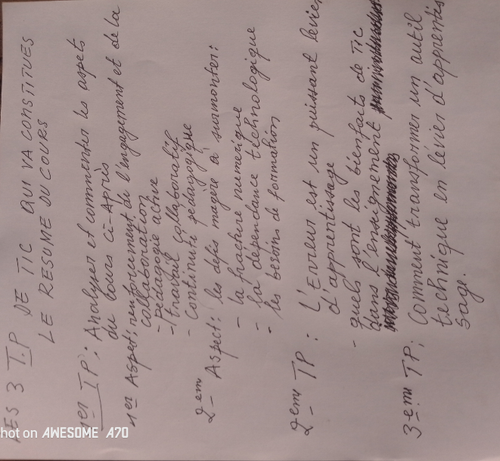 LES 3 T.P DE TIC QUI VA CONSTITUES
LE RESUME DU COURS
1er TP: Analyser et commenter les aspets
du cours ci-après
1er Aspect: renforcement de l'engagement et de la
collaboration
- pédagogie active
- travail collaboratif
- Continuité pédagogique
2em Aspect: les defis magere à surmonter:
- la fracture numérique
- la dependance technologique
- les besoins de formation
2em TP: L'Erreur est un puissant levier
d'apprentissage
- quels sont les bienfaits de TIC
dans l'enseignement
3em TP: Comment transformer un outil
technique en levier d'apprentis
sage.
Shot on AWESOME A70